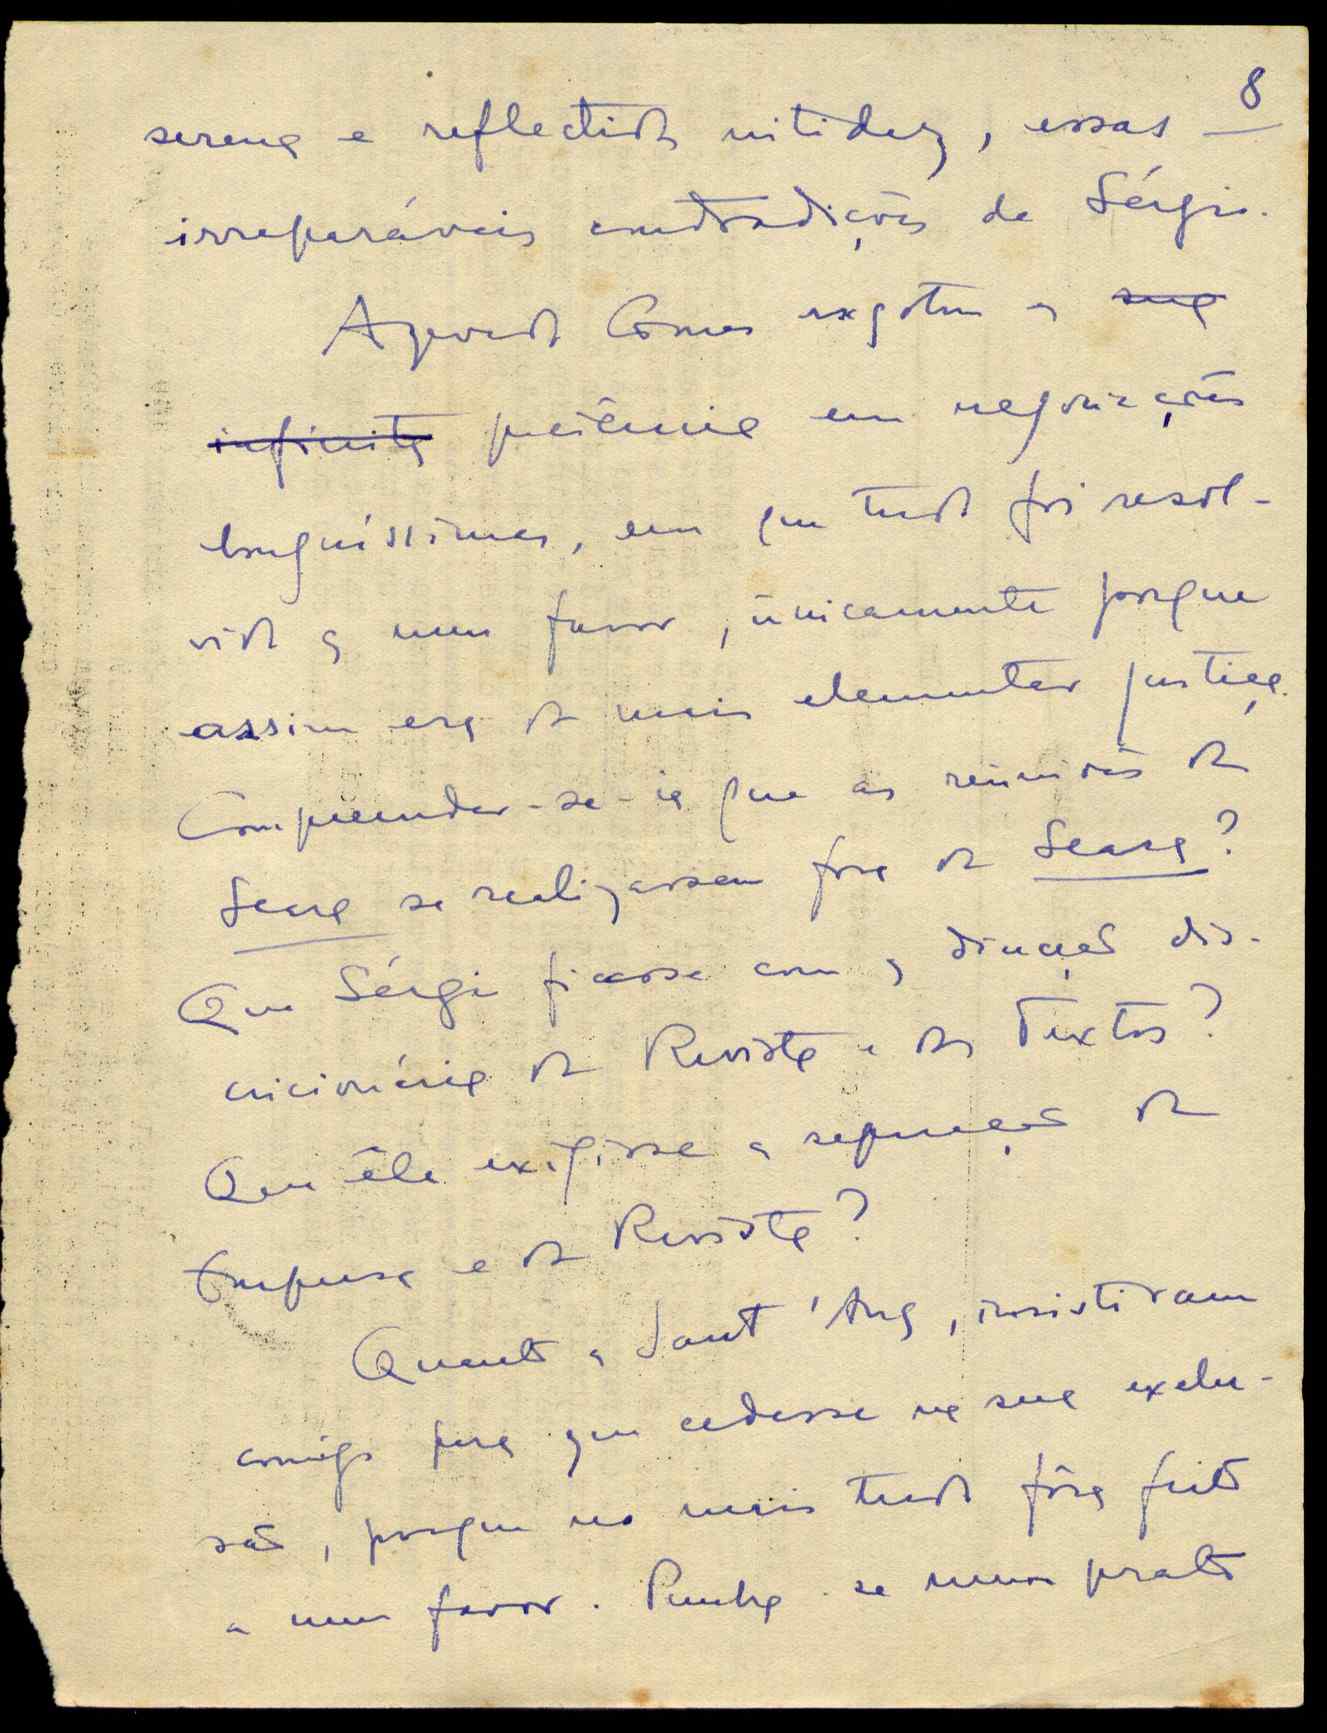 8
serena e reflectida nitidez, essas
irreparáveis contradições de Sérgio.
Azevedo Gomes exgotou a sua
infinita paciência em negociações
longuíssimas, em que tudo foi resol-
vido a meu favor, ùnicamente porque
assim era da mais elementar justiça.
Compreender-se-ia que as reüniões da
Seara se realizassem fora da Seara?
Que Sérgio ficasse com a direcção dis-
cricionária da Revista e dos Textos?
Que êle exigisse a separação da
Empresa e da Revista?
Quanto a Sant'Ana, insistiram
comigo para que cedesse na sua exclu-
são, porque no mais tudo fôra feito
a meu favor. Punha-se num prato